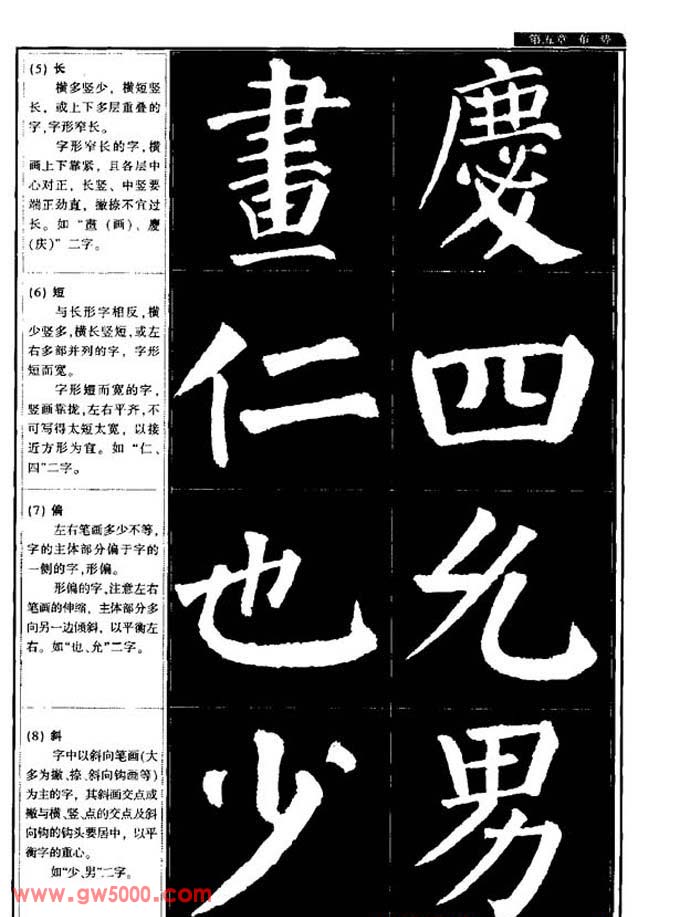 第五章 布 势
(5) 长
横多竖少，横短竖
长，或上下多层重叠的
字，字形窄长。
字形窄长的字，横
画上下靠紧，且各层中
心对正，长竖、中竖要
端正劲直，撇捺不宜过
长。如“畫（画）、慶
(庆)”二字。
畫 慶
(6) 短
与长形字相反，横
少竖多，横长竖短，或左
右多部并列的字，字形
短而宽。
字形短而宽的字，
竖画靠拢，左右平齐，不
可写得太短太宽，以接
近方形为宜。如“仁、
四”二字。
仁 四
(7) 偏
左右笔画多少不等，
字的主体部分偏于字的
一侧的字，形偏。
形偏的字，注意左右
笔画的伸缩，主体部分多
向另一边倾斜，以平衡左
右。如“也、允”二字。
也 允
(8) 斜
字中以斜向笔画(大
多为撇、捺、斜向钩画等)
为主的字，其斜画交点或
撇与横、竖、点的交点及斜
向钩的钩头要居中，以平
衡字的重心。
如“少、男”二字。
少 男
www.gw5000.com